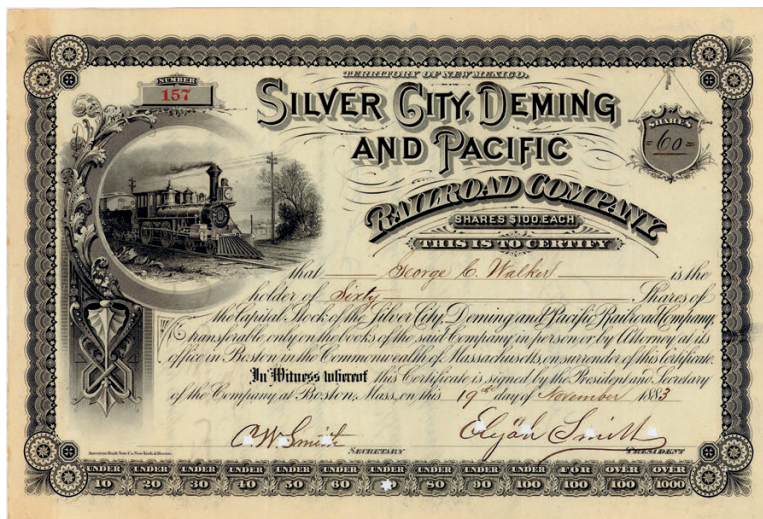 TERRITORY OF NEW MEXICO.
NUMBER
157
SILVER CITY, DEMING
AND PACIFIC
RAILROAD COMPANY
SHARES
=60=
SHARES $100. EACH
THIS IS TO CERTIFY
that George C. Walker is the
holder of Sixty Shares of
the Capital Stock of the Silver City, Deming and Pacific Railroad Company,
transferable only on the books of the said Company in person or by Attorney at its
office in Boston in the Commonwealth of Massachusetts, on surrender of this Certificate.
In Witness whereof this Certificate is signed by the President and Secretary
of the Company at Boston, Mass, on this 19th day of November 1883
C.W. Smith SECRETARY
Elijah Smith PRESIDENT
American Bank Note Co. New York & Boston.
UNDER 10 UNDER 20 UNDER 30 UNDER 40 UNDER 50 UNDER 60 UNDER UNDER 80 UNDER 90 UNDER 100 FOR 100 OVER 100 OVER 1000